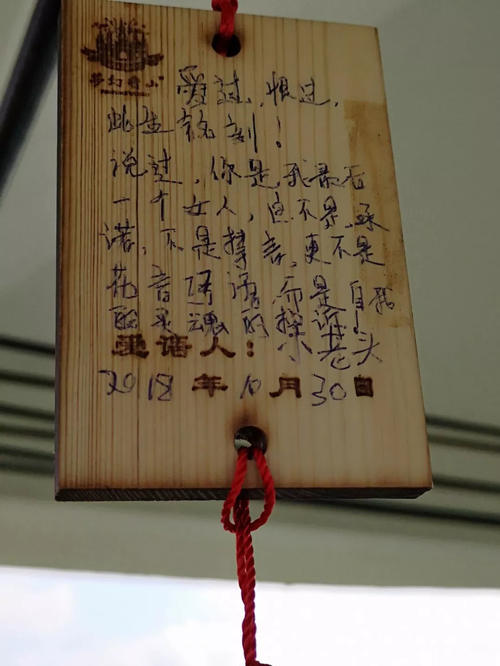 爱过,恨过,
此生铭刻!
说过,你是我最后
一个女人,这不是承
诺,不是 更不是
花 语 而是自我
的灵魂的
爱语人:小老头
2018年10月30日